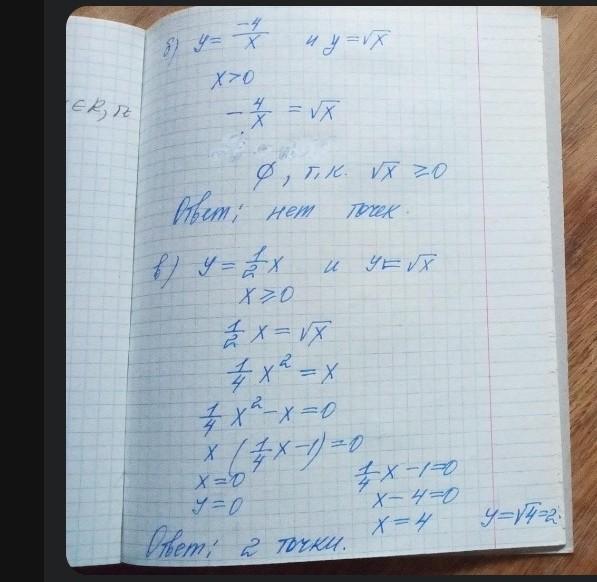 б) y = -4/x и y = √x
x > 0
∈ R, тк
- 4/x = √x
∅, т.к. √x ≥ 0
Ответ: нет точек.
в) y = 1/2 x и y = √x
x ≥ 0
1/2 x = √x
1/4 x² = x
1/4 x² - x = 0
x (1/4 x - 1) = 0
x = 0 1/4 x - 1 = 0
y = 0 x - 4 = 0
x = 4 y = √4 = 2.
Ответ: 2 точки.